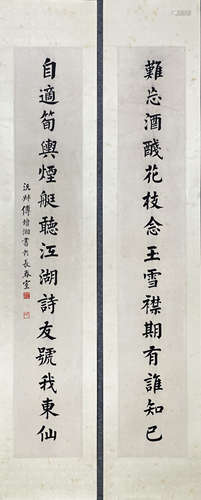 難忘酒醆花枝念玉雪襟期有誰知己
自適筍輿煙艇聽江湖詩友號我東仙
沅叔傅增湘書於長春室